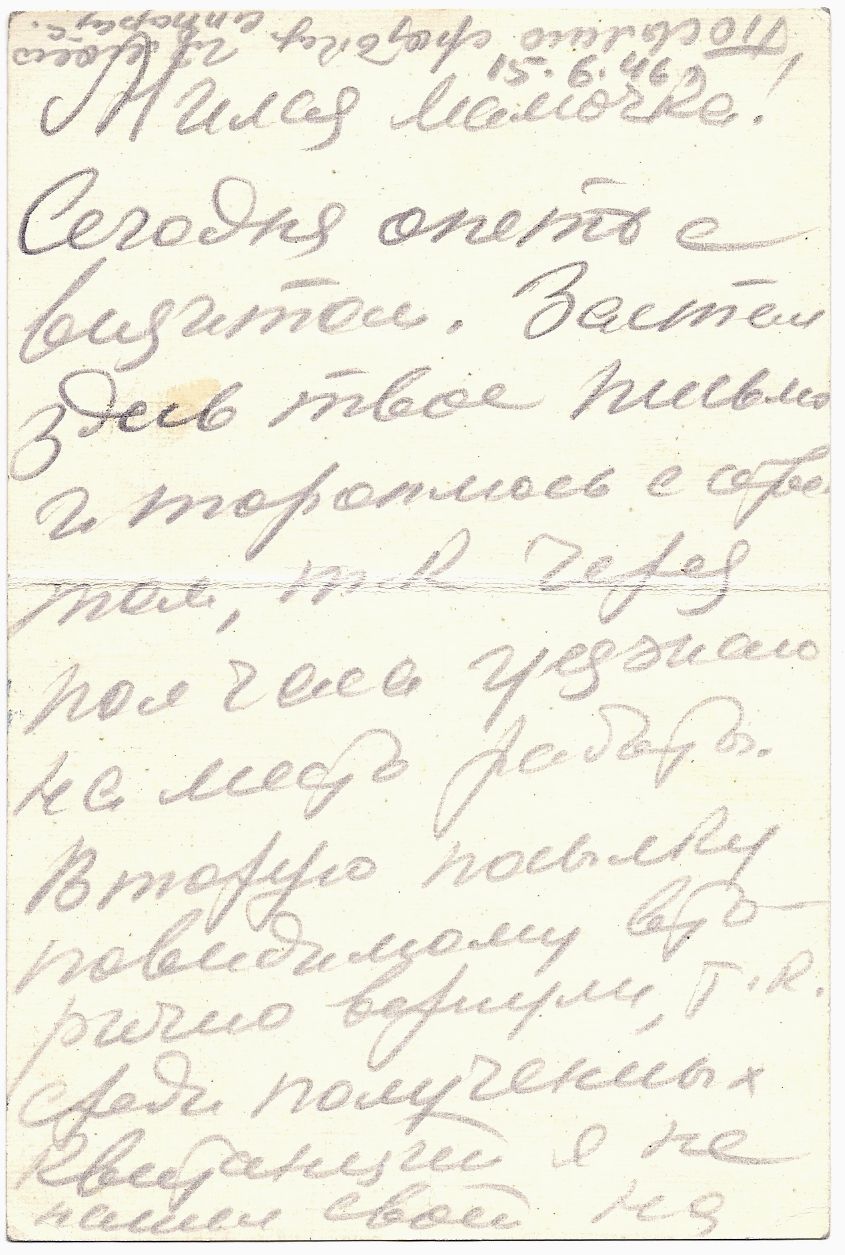 Посылаю
15.6.46 г.
Милая мамочка!
Сегодня опять с
визитом. Застал
здесь твое письмо
и тороплюсь с отве-
том, т.к. через
пол часа уезжаю
на место работы.
Вторую посылку
повидимому вто-
рично вернули, т.к.
среди полученных
квитанций я не
нашел свой на